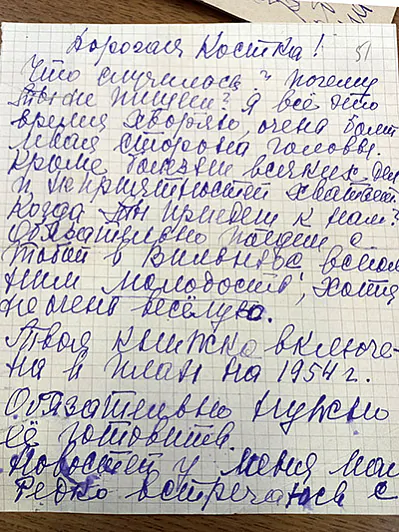 Дорогая Костка! 51
Что случилось? почему
ты не пишешь? я всё это
время хвораю, очень болит
левая сторона головы.
Кроме болезни всяких дел
и неприятностей хватает.
Когда ты приедешь к нам?
Обязательно поедем с
тобой в Вильнюс, вспом
ним молодость, хотя
не очень весёлую.
Твоя книжка включе-
на в план на 1954 г.
Обязательно нужно
её готовить.
Новостей у меня мал
Редко встречаюсь с